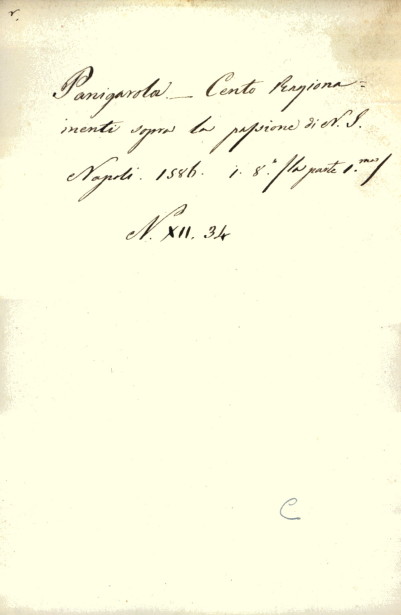 r.
Panigarola — Cento Ragiona=
menti sopra la passione di N. S.
Napoli. 1586. i. 8.° /la parte 1.ma/
N. XII. 34
C